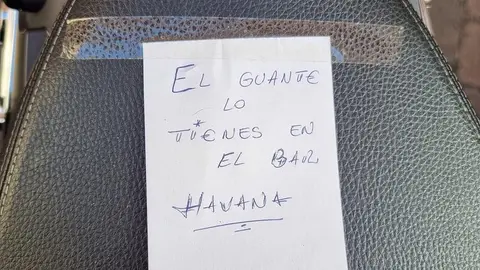 EL GUANTE
LO
TIENES EN
EL BAR
HAVANA